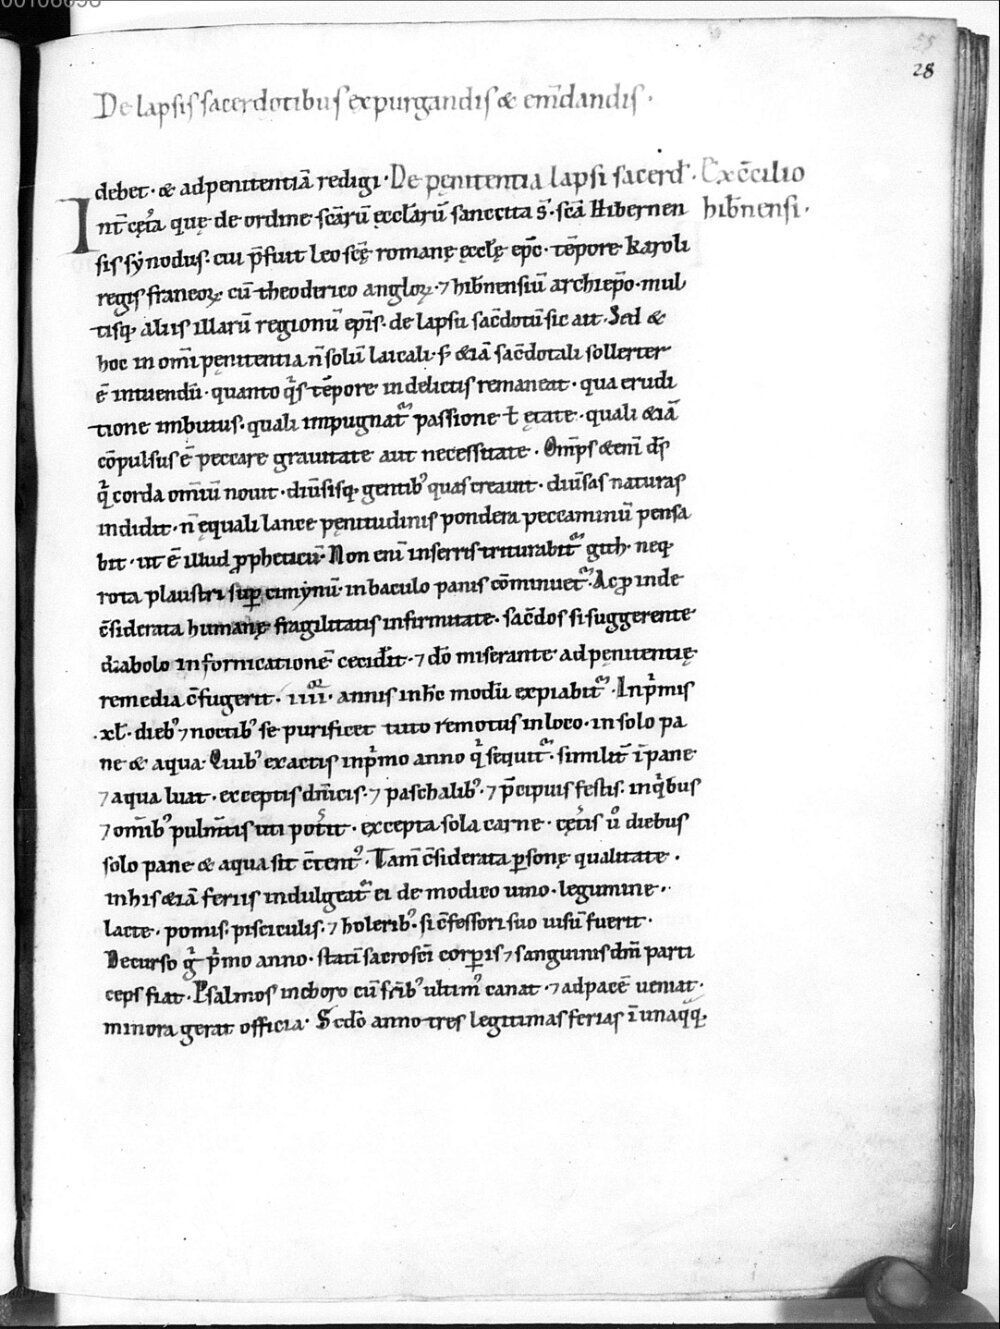 00106098
55
28
De lapsis sacerdotibus expurgandis & em̄dandis.
debet. & ad penitentiā redigi. De pęnitentia lapsi sacerđ. Ex c̄cilio
Int̄ cęt̾a quę de ordine sc̄arū ęccl̄arū sanccita s̄. sc̄a Hibernen hib̄nensi.
sis synodus. cui p̄fuit leo sc̄ę romanę ęccl̄ę ep̄c. tēpore karoli
regis francoꝝ. cū theoderico angloꝝ. ⁊ hib̄nensiū archiep̄o. mul
tisq; aliis illarū regionū ep̄is. de lapsu sac̄dotū sic ait. Sed &
hoc in om̄i pęnitentia n̄ solū laicali. s; &iā sac̄dotali sollerter
ē intuendū. quanto qͥs tēpore in delictis remaneat. qua erudi
tione imbutus. quali impugnat᷑ passione ł ętate. quali &iā
cōpulsus ē peccare grauitate aut necessitate. Om̄ps &eni̅ d̄s
qͥ corda om̄iū nouit. diu̅sisq; gentib; quas creauit. diu̅sas naturas
indidit. n̄ ęquali lance pęnitudinis pondera peccaminū pensa
bit. ut ē illud ꝓpheticū. Non eni̅ in serris triturabit᷑ gith. neq;
rota plaustri suꝑ cimynū. in baculo panis cōminuet᷑. Ac ꝓinde
c̄siderata humanę fragilitatis infirmitate. sac̄dos si suggerente
diabolo in fornicationē cecid̾it. ⁊ dō miserante ad pęnitentię
remedia c̄fugerit. iiii. annis in hc̄ modū expiabit᷑. In pͥmis
.xl. dieb; ⁊ noctib; se purificet tuto remotus in loco. in solo pa
ne & aqua. Quib; exactis in pͥmo anno qͥ sequit᷑. similit̄ ī pane
⁊ aqua luat. exceptis dn̄icis. ⁊ paschalib; ⁊ p̄cipuis festis. in qͥbus
⁊ om̄ib; pulm̄tis uti pot̾it. excepta sola carne. cęt̾is u̅ diebus
solo pane & aqua sit c̄tent;. Tam̄ c̄siderata ꝑsonę qualitate.
in his &iā feriis indulgeat᷑ ei de modico uino. legumine.
lacte. pomis. pisciculis. ⁊ holerib;. si c̄fessori suo uisū fuerit.
Decurso gͥ pͥmo anno. statī sacrosc̄i corꝑis ⁊ sanguinis dn̄i parti
ceps fiat. Psalmos in choro cū fr̄ib; ultim; canat. ⁊ ad pacē ueniat.
minora gerat officia. Sc̄do anno tres legitimas ferias ī unaqq;